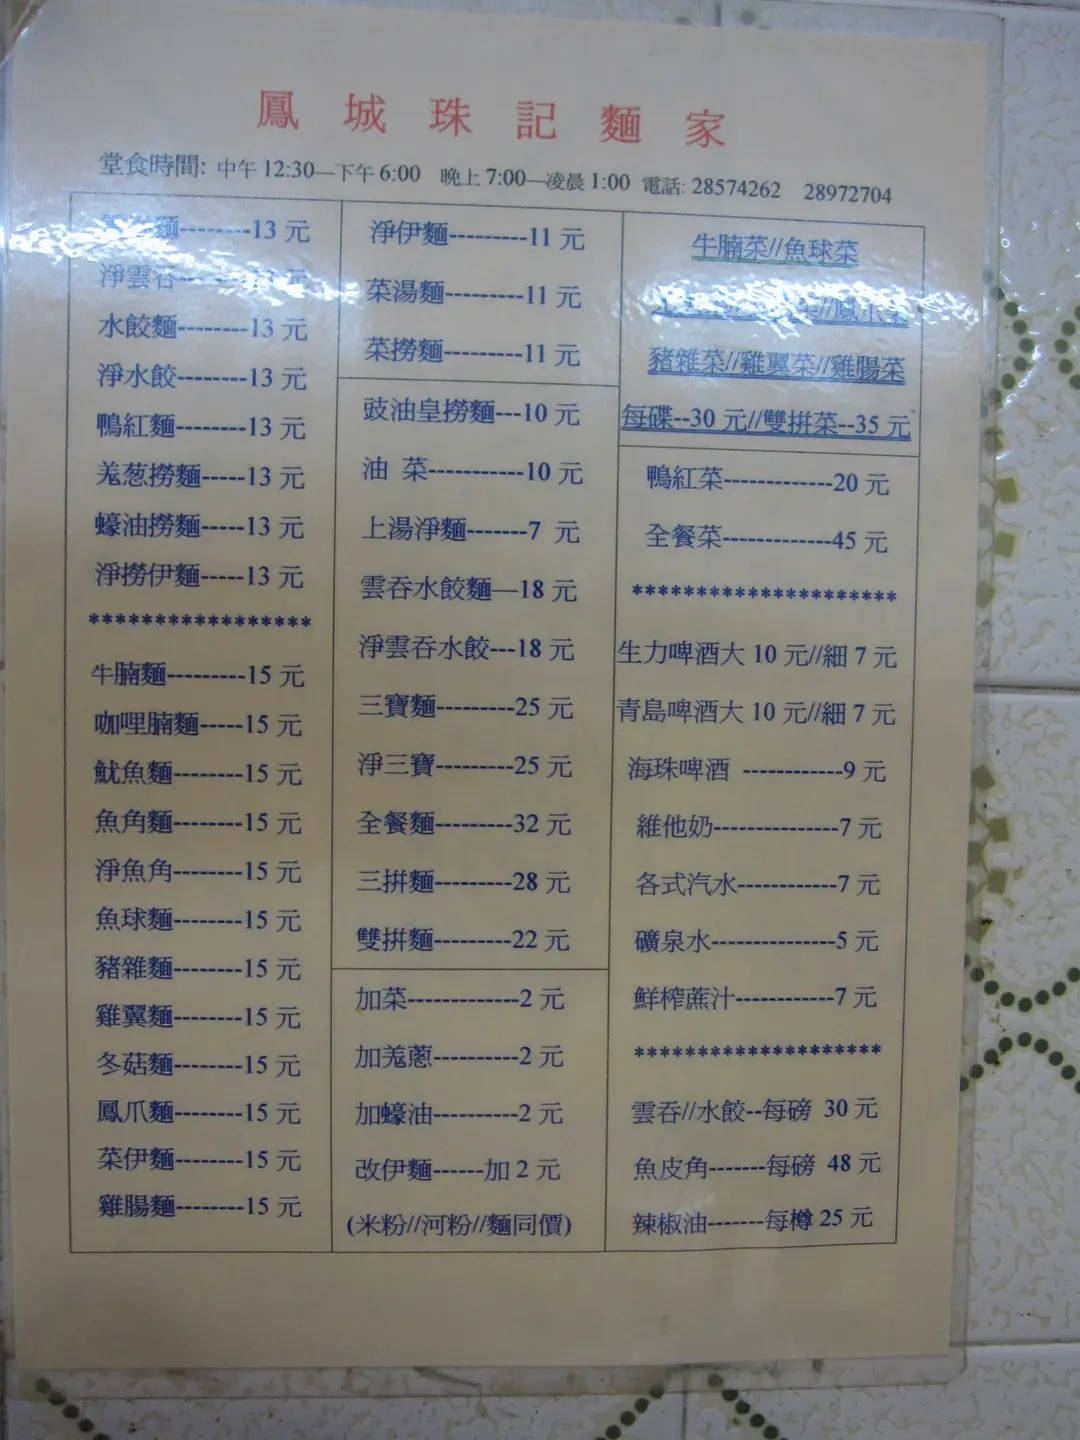 鳳城珠記麵家
堂食時間: 中午 12:30—下午 6:00 晚上 7:00—凌晨 1:00 電話: 28574262 28972704
麵--------13 元
淨雲吞
水餃麵--------13 元
淨水餃--------13 元
鴨紅麵--------13 元
羗葱撈麵-----13 元
蠔油撈麵-----13 元
淨撈伊麵-----13 元
*****************
牛腩麵---------15 元
咖哩腩麵-----15 元
魷魚麵--------15 元
魚角麵--------15 元
淨魚角--------15 元
魚球麵--------15 元
豬雜麵--------15 元
雞翼麵--------15 元
冬菇麵--------15 元
鳳爪麵--------15 元
菜伊麵--------15 元
雞腸麵--------15 元
淨伊麵---------11 元
菜湯麵---------11 元
菜撈麵---------11 元
豉油皇撈麵---10 元
油 菜-----------10 元
上湯淨麵-------7 元
雲吞水餃麵—18 元
淨雲吞水餃---18 元
三寶麵---------25 元
淨三寶---------25 元
全餐麵---------32 元
三拼麵---------28 元
雙拼麵---------22 元
加菜-------------2 元
加羗蔥----------2 元
加蠔油----------2 元
改伊麵------加 2 元
(米粉//河粉//麵同價)
牛腩菜//魚球菜
//鳳爪菜
豬雜菜//雞翼菜//雞腸菜
每碟--30 元//雙拼菜--35 元
鴨紅菜-------------20 元
全餐菜-------------45 元
*********************
生力啤酒大 10 元//細 7 元
青島啤酒大 10 元//細 7 元
海珠啤酒 ------------9 元
維他奶---------------7 元
各式汽水------------7 元
礦泉水---------------5 元
鮮榨蔗汁------------7 元
********************
雲吞//水餃--每磅 30 元
魚皮角-------每磅 48 元
辣椒油-------每樽 25 元